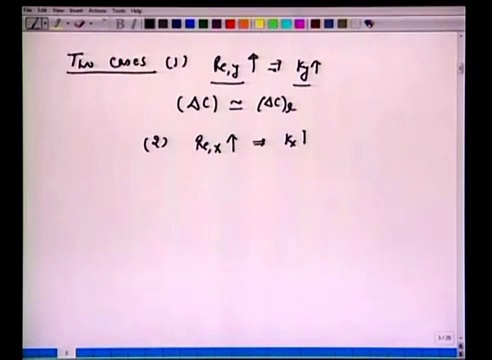 File Edit View Insert Actions Tools Help
Two cases (1) Re,y ↑ ⇒ Ky↑
(ΔC) ≃ (ΔC)l
(2) Re,x ↑ ⇒ Kx↑